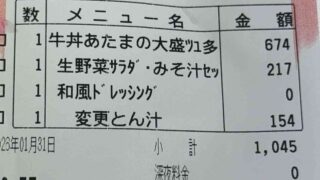 数 メニュー名 金額
1 牛丼あたまの大盛ﾂﾕ多 674
1 生野菜ｻﾗﾀﾞ･みそ汁ｾｯ 217
1 和風ﾄﾞﾚｯｼﾝｸﾞ 0
1 変更とん汁 154
年01月31日 小計 1,045
深夜料金 0